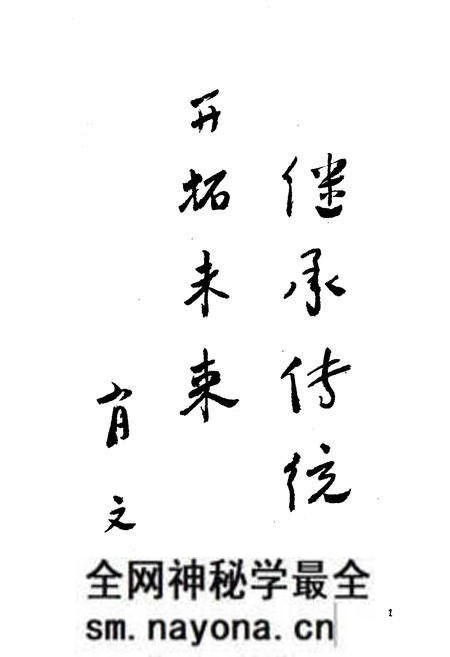 继承传统
开拓未来
肖文
全网神秘学最全
sm.nayona.cn
1